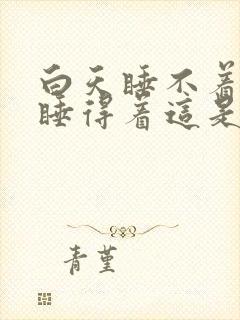 白天睡不着
睡得着這是
青堇